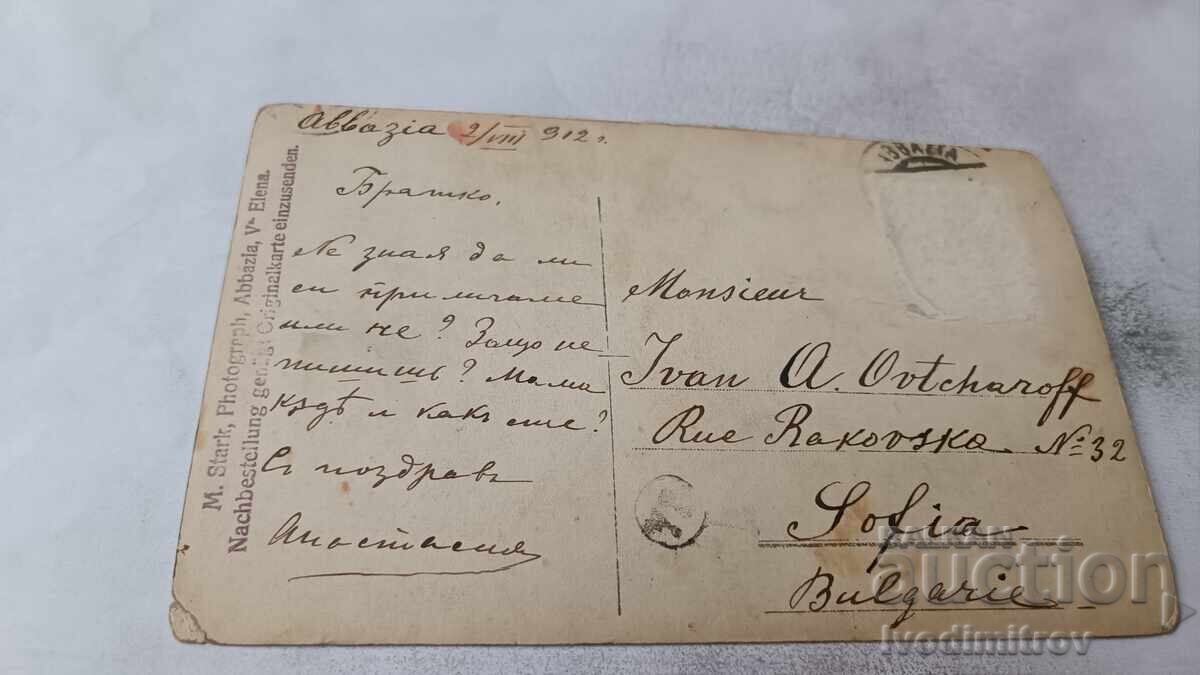 Abbazia 2/VIII 912 г.
Братко,
Не зная да ли
си приличаме
или не? Защо не
пишишъ? Мама
кѫдѣ и какъ сте?
Съ поздравъ
Анастасия
M. Stark, Photograph, Abbazia, Va Elena.
Nachbestellung genügt Originalkarte einzusenden.
Monsieur
Ivan A. Ovtcharoff
Rue Rakovska №32
Sofia
Bulgarie
BALKAN
auction
Ivodimitrov